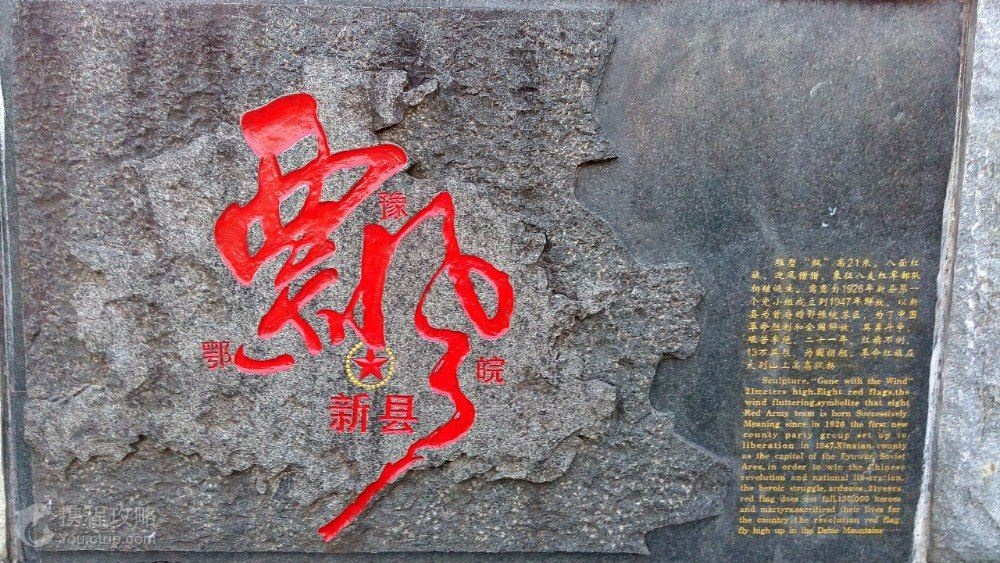 飘
豫
鄂
皖
新县
雕塑“飘”高21米。八面红
旗,迎风猎猎,象征八支红军部队
相继诞生。寓意自1926年新县第一
个党小组成立到1947年解放,以新
县为首府的鄂豫皖苏区,为了中国
革命胜利和全国解放,英勇斗争,
艰苦卓绝,二十一年,红旗不倒,
13万英烈,为国捐躯,革命红旗在
大别山上高高飘扬……
Sculpture, "Gone with the Wind"
21meters high.Eight red flags,the
wind fluttering,symbolize that eight
Red Army team is born Successively.
Meaning since in 1926 the first new
county party group set up to
liberation in 1947.Xinxian county
as the capital of the Eyuwan Soviet
Area, in order to win the Chinese
revolution and national lib-erration,
the heroic struggle, arduous, 21years
red flag does not fall,130,000 heroes
and martyrs,sacrificed their lives for
the country,the revolution red flag
fly high up in the Dabie Mountains……
携程攻略
You.ctrip.com